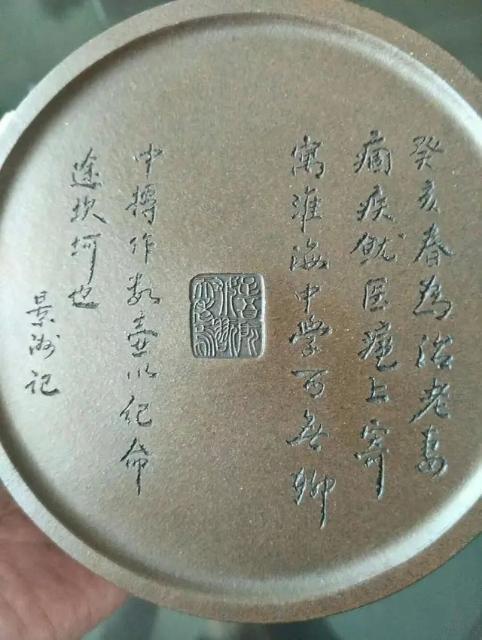 癸亥春為治老妻
痼疾就医滬上寄
寓淮海中学百無聊
中摶作数壺以纪命
途坎坷也
景洲记